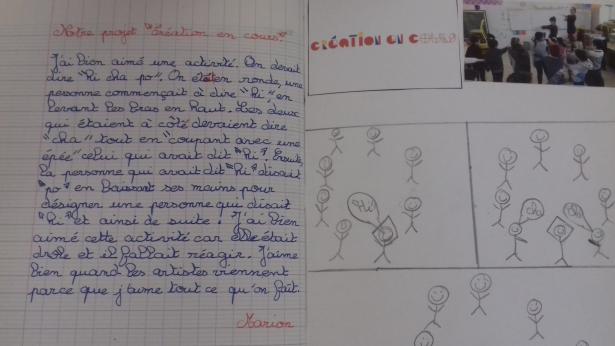 Notre projet "Création en cours."
J'ai bien aimé une activité. On devait
dire "Hi cha po". On était en ronde, une
personne commençait à dire "Hi" en
levant les bras en haut. Les deux
qui étaient à côté devaient dire
"cha" tout en "coupant avec une
épée" celui qui avait dit "Hi". Ensuite,
la personne qui avait dit "Hi" disait
"po" en baissant ses mains pour
désigner une personne qui disait
"Hi" et ainsi de suite. J'ai bien
aimé cette activité car elle était
drole et il fallait réagir. J'aime
bien quand les artistes viennent
parce que j'aime tout ce qu'on fait.
Marion
CRÉATION EN COURS
Hi
cha
cha